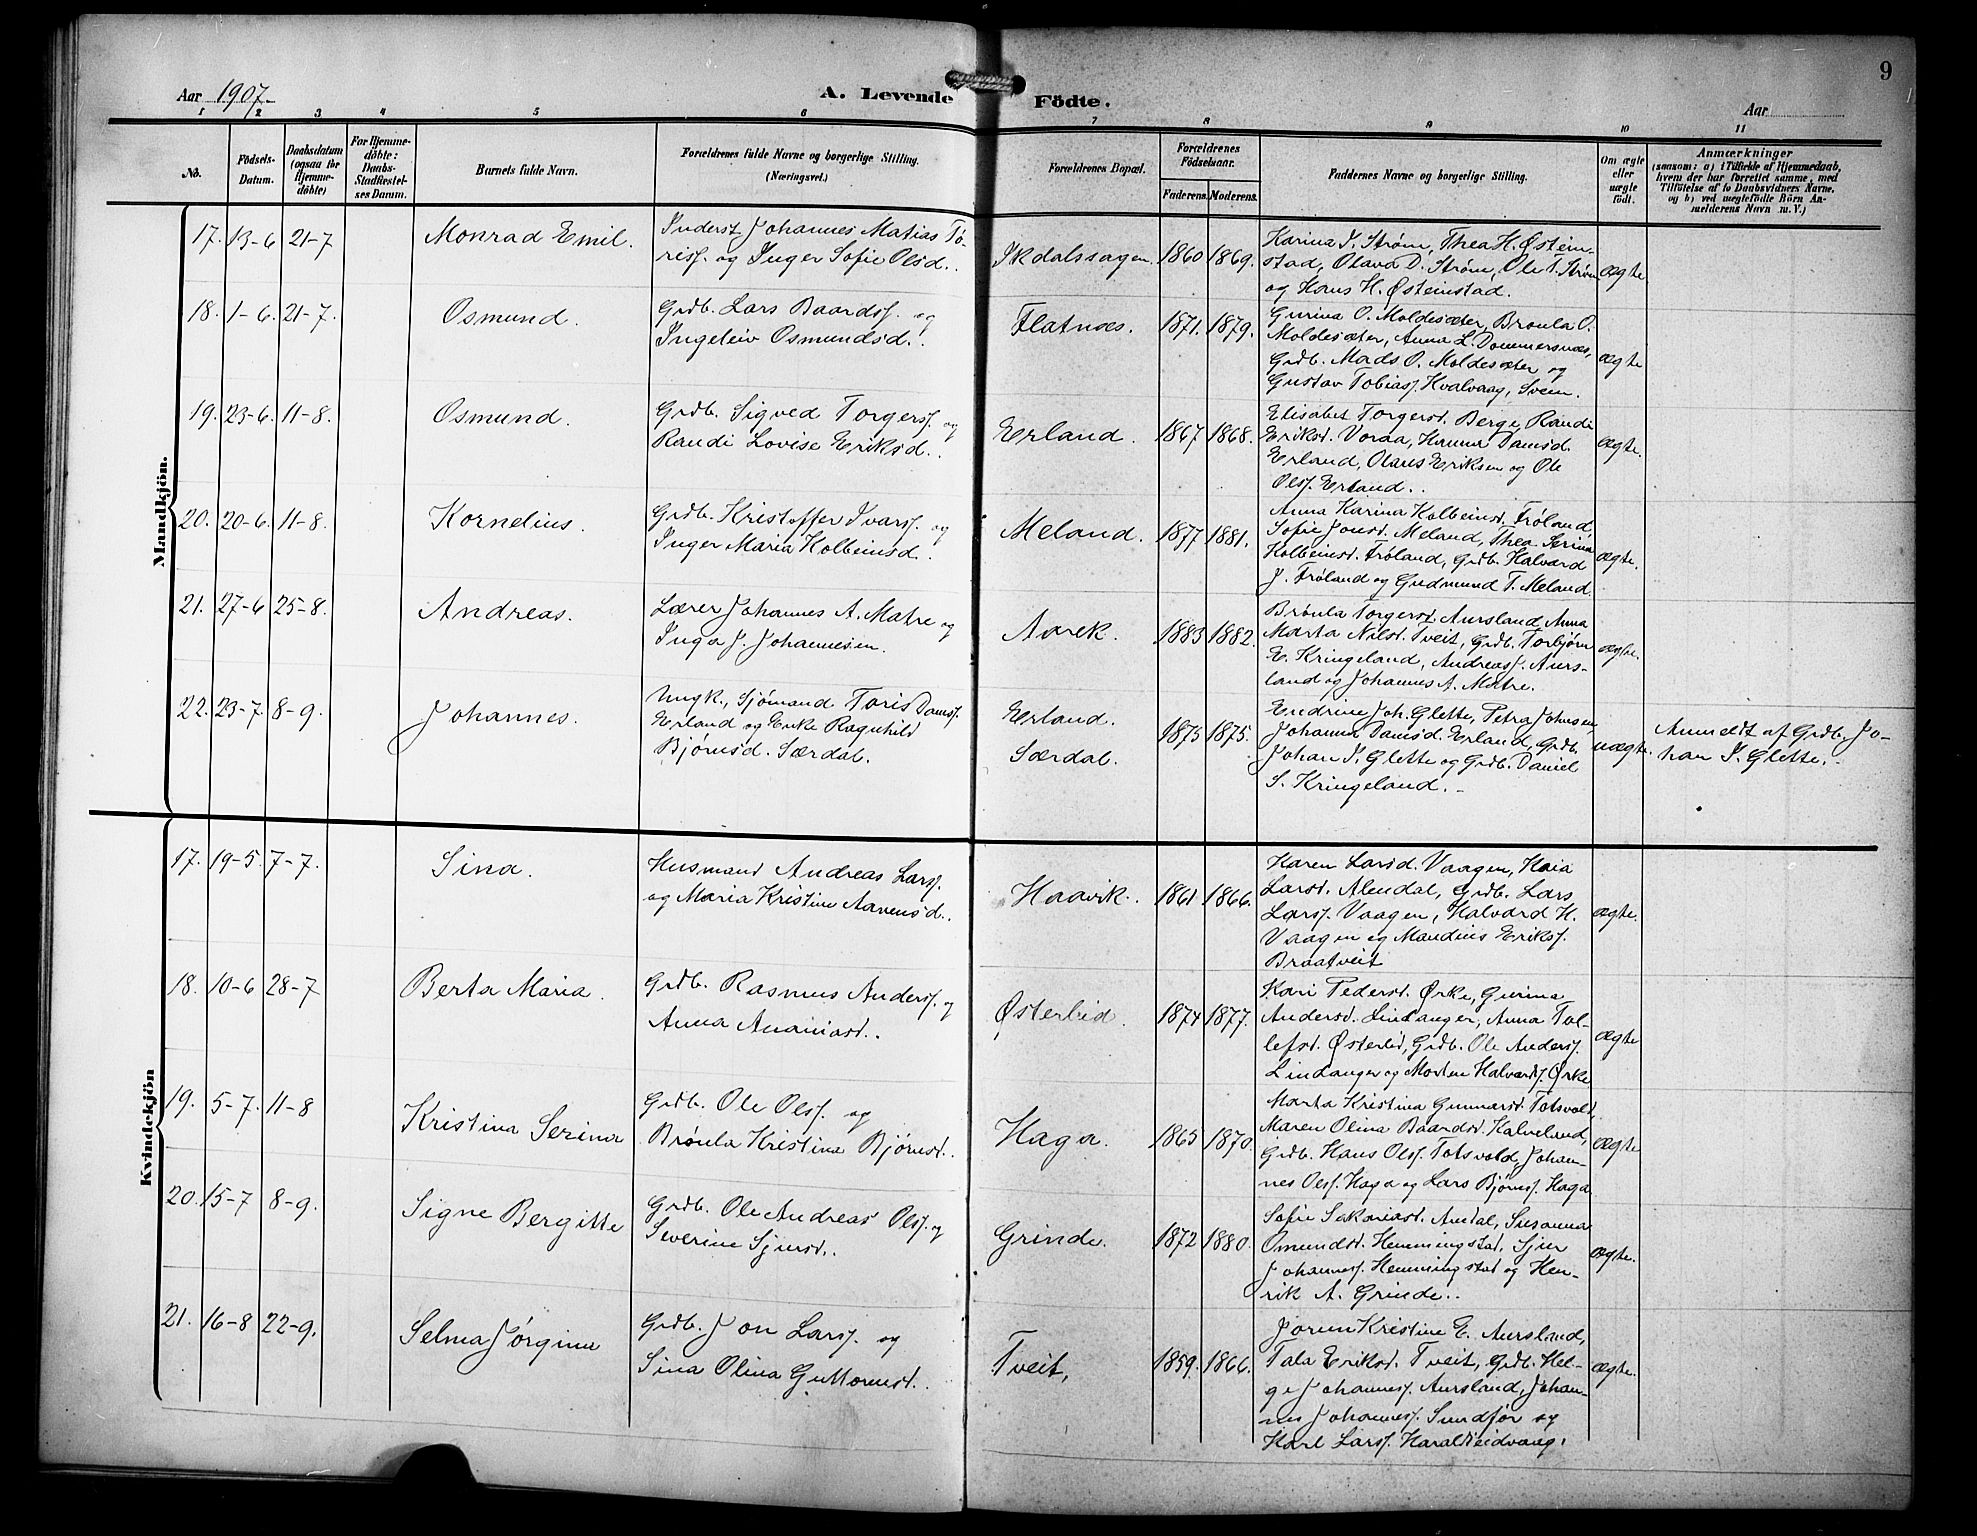 9
Aar 1907.
A. Levende Födte.
Aar
1 2 3 4 5 6 7 8 9 10 11
No.
Födsels-
Datum.
Daabsdatum
(ogsaa for
Hjemme-
döbte)
For Hjemme-
döbte:
Daabs-
Stadfæstel-
ses Datum.
Barnets fulde Navn.
Forældrenes fulde Navne og borgerlige Stilling.
(Næringsvei.)
Forældrenes Bopæl.
Forældrenes
Födselsaar.
Faderens. Moderens.
Faddernes Navne og borgerlige Stilling.
Om ægte
eller
uægte
födt.
Anmærkninger
(saasom: a) i Tilfælde af Hjemmedaab,
hvem der har forrettet samme, med
Tilföielse af to Daabsvidners Navne,
og b) ved uægtefödte Börn An-
melderens Navn m. V.)
Mandkjön.
17. 13-6 21-7
Monrad Emil.
Inderst Johannes Matias Tø-
ress. og Inger Sofie Olsd..
1860 1869.
Karina J. Strøm, Thea H. Østein-
stad, Olava D. Strøm, Ole T. Strøm
og Hans H. Østeinstad.
ægte
18. 1-6. 21-7.
Osmund.
Grdb. Lars Baards. og
Ingeleiv Osmundsd..
Flatnæs.
1871. 1879.
Gurina O. Moldesæter, Brønla O.
Moldesæter, Anna L. Dommersnæs,
Grdb. Mads O. Moldesæter og
Gustav Tobiass. Kvalvaag, Sveen.
ægte
19. 23-6. 11-8.
Osmund.
Grdb. Sigved Torgers. og
Randi Lovise Eriksd..
Erland.
1867 1868.
Elisabet Torgersd. Berge, Randi
Eriksd. Voraa, Hanna Damsd.
Erland, Olaus Eriksen og Ole
Ols. Erland..
ægte.
20. 20-6. 11-8.
Kornelius.
Grdb. Kristoffer Ivars. og
Inger Maria Kolbeinsd..
Meland.
1877 1881.
Anna Karina Kolbeinsd. Frøland,
Sofie Jonsd. Meland, Thea Serina
Kolbeinsd. Frøland, Grdb. Halvard
J. Frøland og Gudmund T. Meland.
ægte.
21. 27-6 25-8.
Andreas.
Lærer Johannes A. Matre og
Inga J. Johannesen.
Aarek.
1883 1882.
Brønla Torgersd. Aursland, Anna
Marta Nilsd. Tveit, Grdb. Torbjørn
E. Kringeland, Andreass. Aurs-
land og Johannes A. Matre.
ægte.
22. 23-7. 8-9.
Johannes.
Ungk., Sjømand Toris Dams.
Erland og Enke Ragnhild
Bjørnsd. Særdal.
Erland.
Særdal.
1875 1875.
Endrine Joh. Glette, Petra Johnsen,
Johanna Damsd. Erland, Grdb.
Johan J. Glette og Grdb. Daniel
S. Kringeland.
uægte.
Anmeldt af Grdb. Jo-
han J. Glette.
Kvindekjön
17. 19-5. 7-7.
Sina.
Husmand Andreas Lars.
og Maria Kristine Aanensd..
Haavik.
1861 1866.
Karen Larsd. Vaagen, Kaia
Larsd. Alendal, Grdb. Lars
Lars. Vaagen, Halvard H.
Vaagen og Mandius Eriks.
Braatveit
ægte.
18. 10-6 28-7
Berta Maria.
Grdb. Rasmus Anders. og
Anna Ananiasd..
Østerlid.
1874 1877.
Kari Pedersd. Ørke, Gurina
Andersd. Lindanger, Anna Tol-
lefsd. Østerlid, Grdb. Ole Anders.
Lindanger og Morten Halvards. Ørke
ægte
19. 5-7. 11-8
Kristina Serina
Grdb. Ole Ols. og
Brønla Kristina Bjørnsd..
Haga.
1865 1870.
Marta Kristina Gunnarsd. Totsvold,
Maren Olina Baardsd. Kalveland,
Grdb. Hans Ols. Totsvold, Johan-
nes Ols. Haga og Lars Bjørns. Haga
ægte
20. 15-7 8-9.
Signe Bergitte
Grdb. Ole Andreas Ols. og
Severine Sjursd..
Grinde.
1872 1880.
Sofie Sakariasd. Amdal, Susanna
Omundsd. Hemmingstad, Sjur
Johanness. Hemmingstad og Hen-
rik A. Grinde..
ægte.
21. 16-8 22-9.
Selma Jørgina
Grdb. Jon Lars. og
Sina Olina Guttormsd..
Tveit,
1859. 1866.
Jorun Kristine E. Aursland,
Tala Eriksd. Tveit, Grdb. Hel-
ge Johanness. Aursland, Johan-
nes Johanness. Sundfør og
Karl Lars. Haraldseidvaag.
ægte.